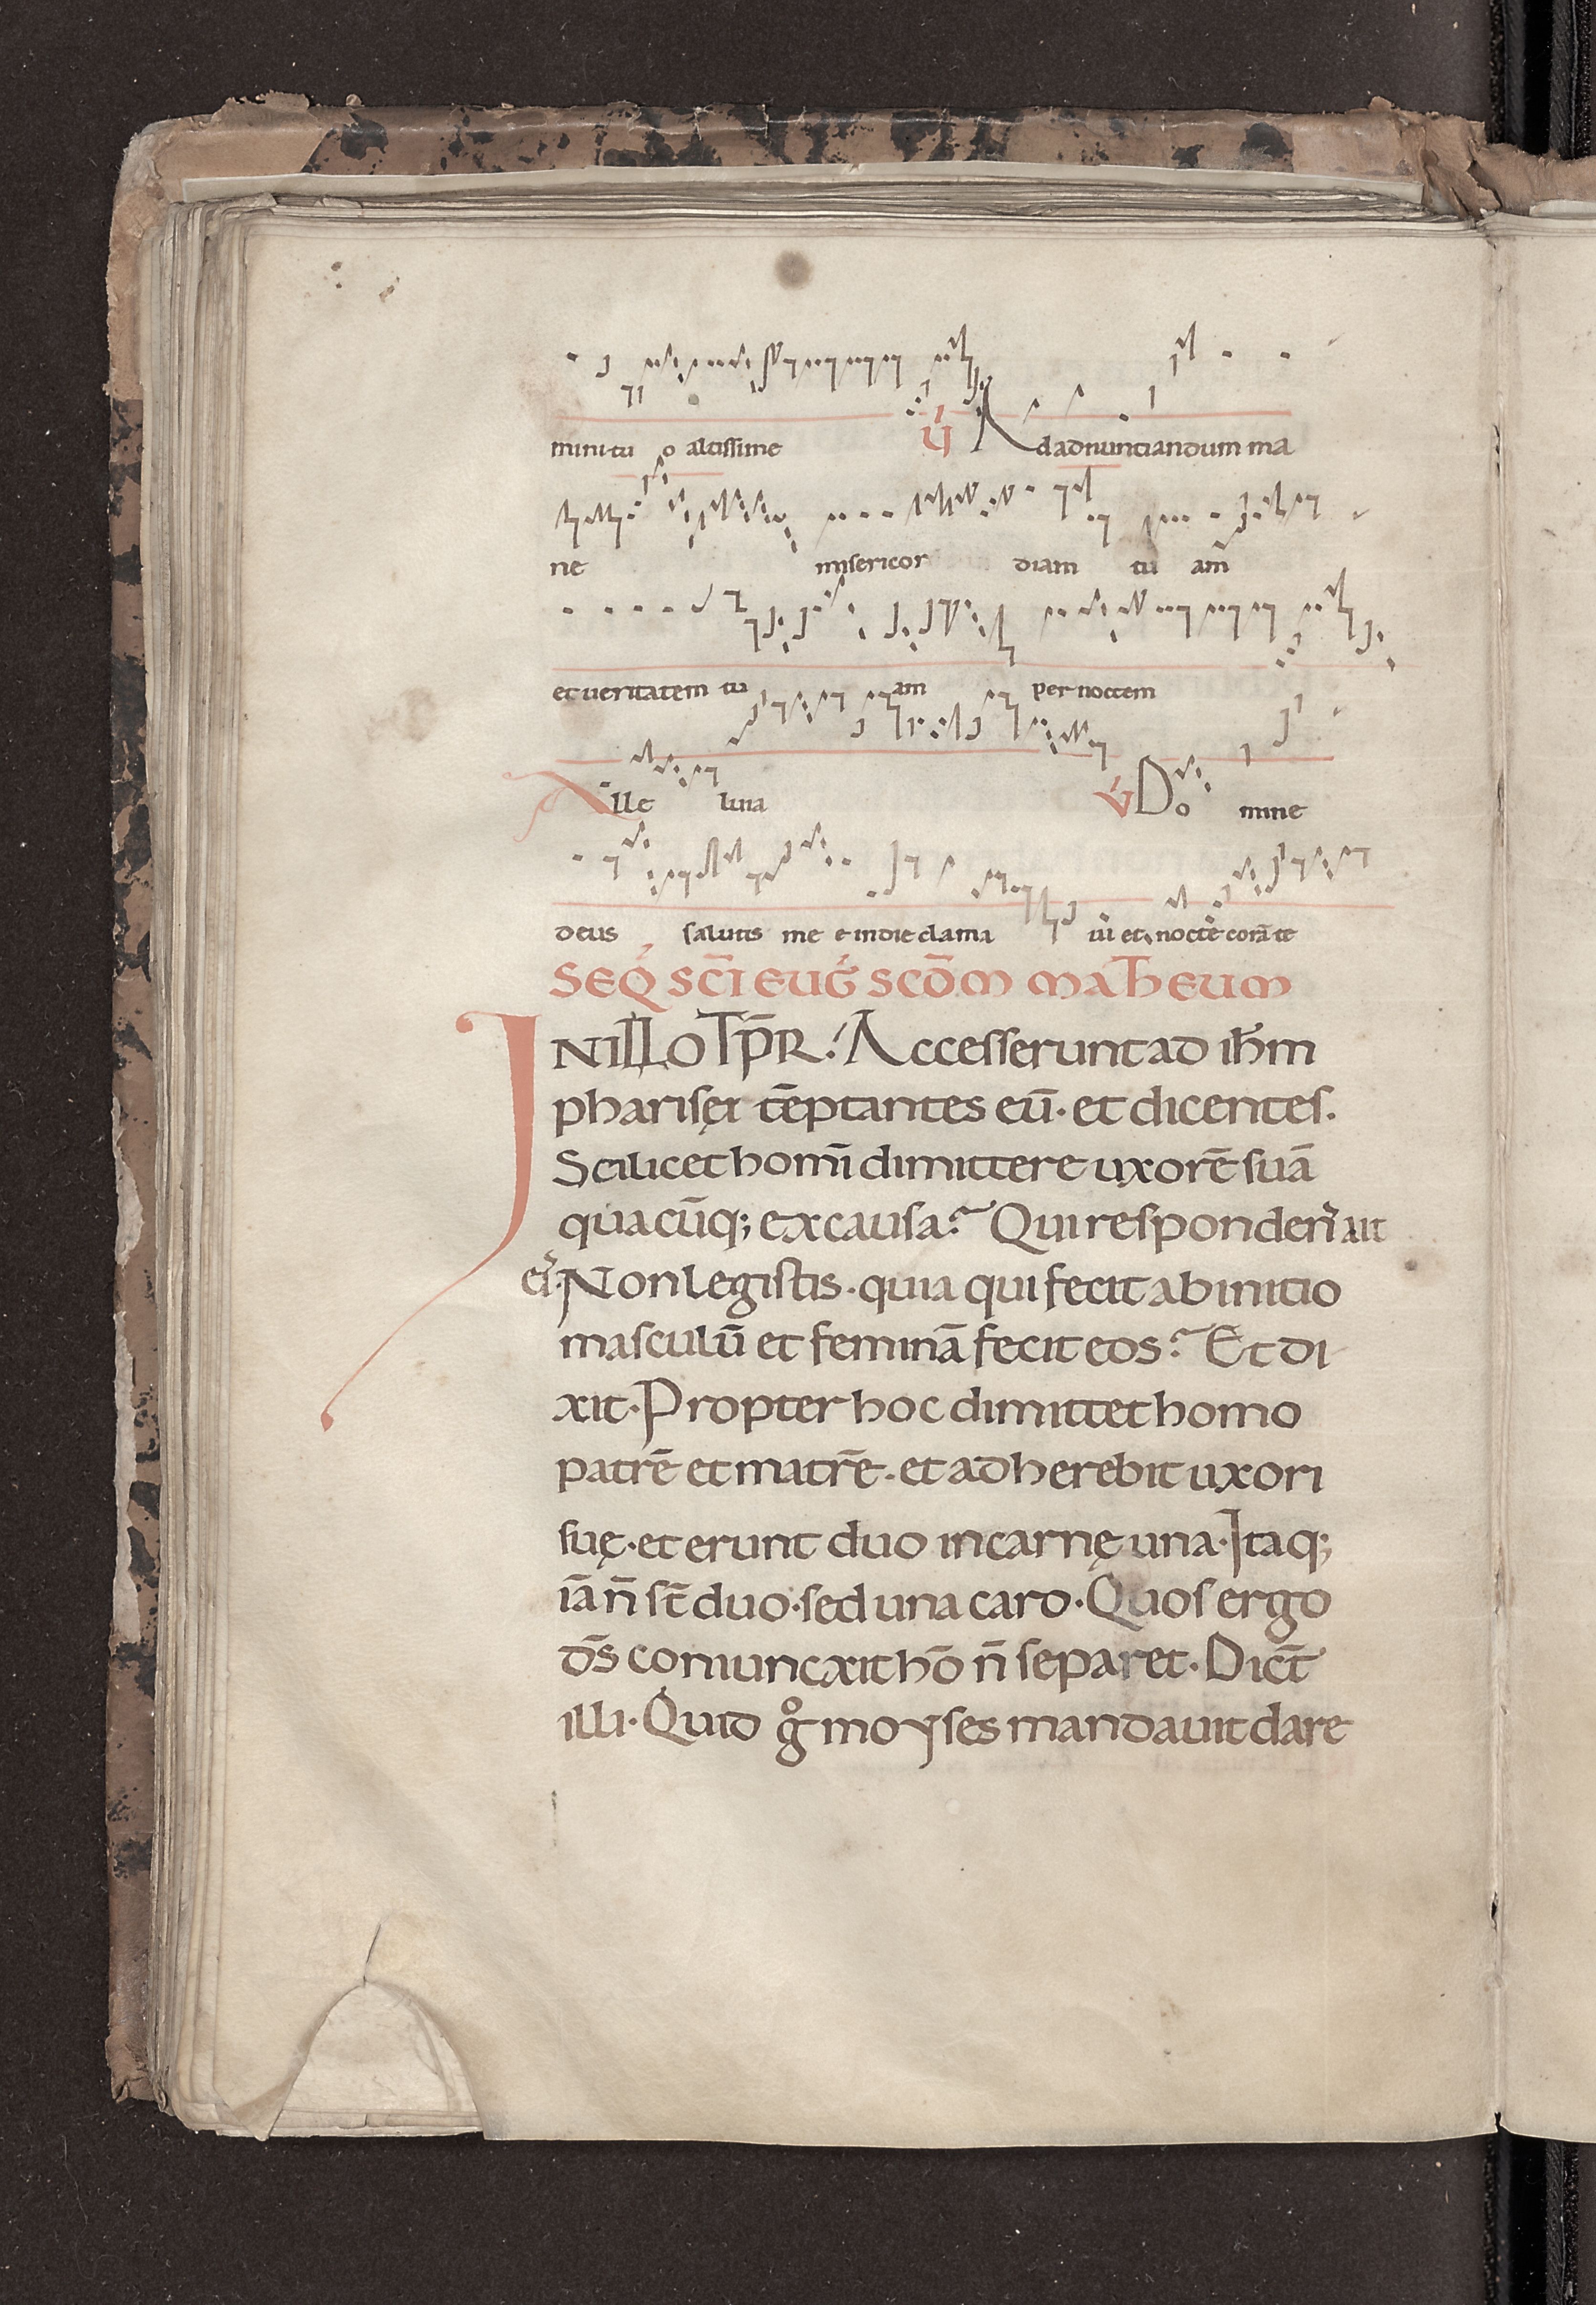 mini tu o altissime V̓ Ad adnuntiandum ma
ne misericor diam tu am̅
et ueritatem tu am per noctem
Alle luia V̓ Do mine
deus salutis me e in die clama ui et nocte corā te
SEQ̓ SC̄I EUG̓ SCD̄M MATHEUM
IN ILLO TP̄R. Accesserunt ad ih̄m
pharisęi tēptantes eū · et dicentes.
Si licet homı̄ dimittere uxorē suā
quacūq; ex causa? Qui responden̄s ait
eis̓. Non legistis · quia qui fecit ab initio
masculū et feminā fecit eos? Et di
xit · Propter hoc dimittet homo
patrē et matrē · et adherebit uxori
suę · et erunt duo in carnę una · Itaq;
iā n̄ st̄ duo · sed una caro · Quos ergo
d̄s coniuncxit hō n̄ separet · Dic̄t
illi · Quid gͦ moyses mandauit dare